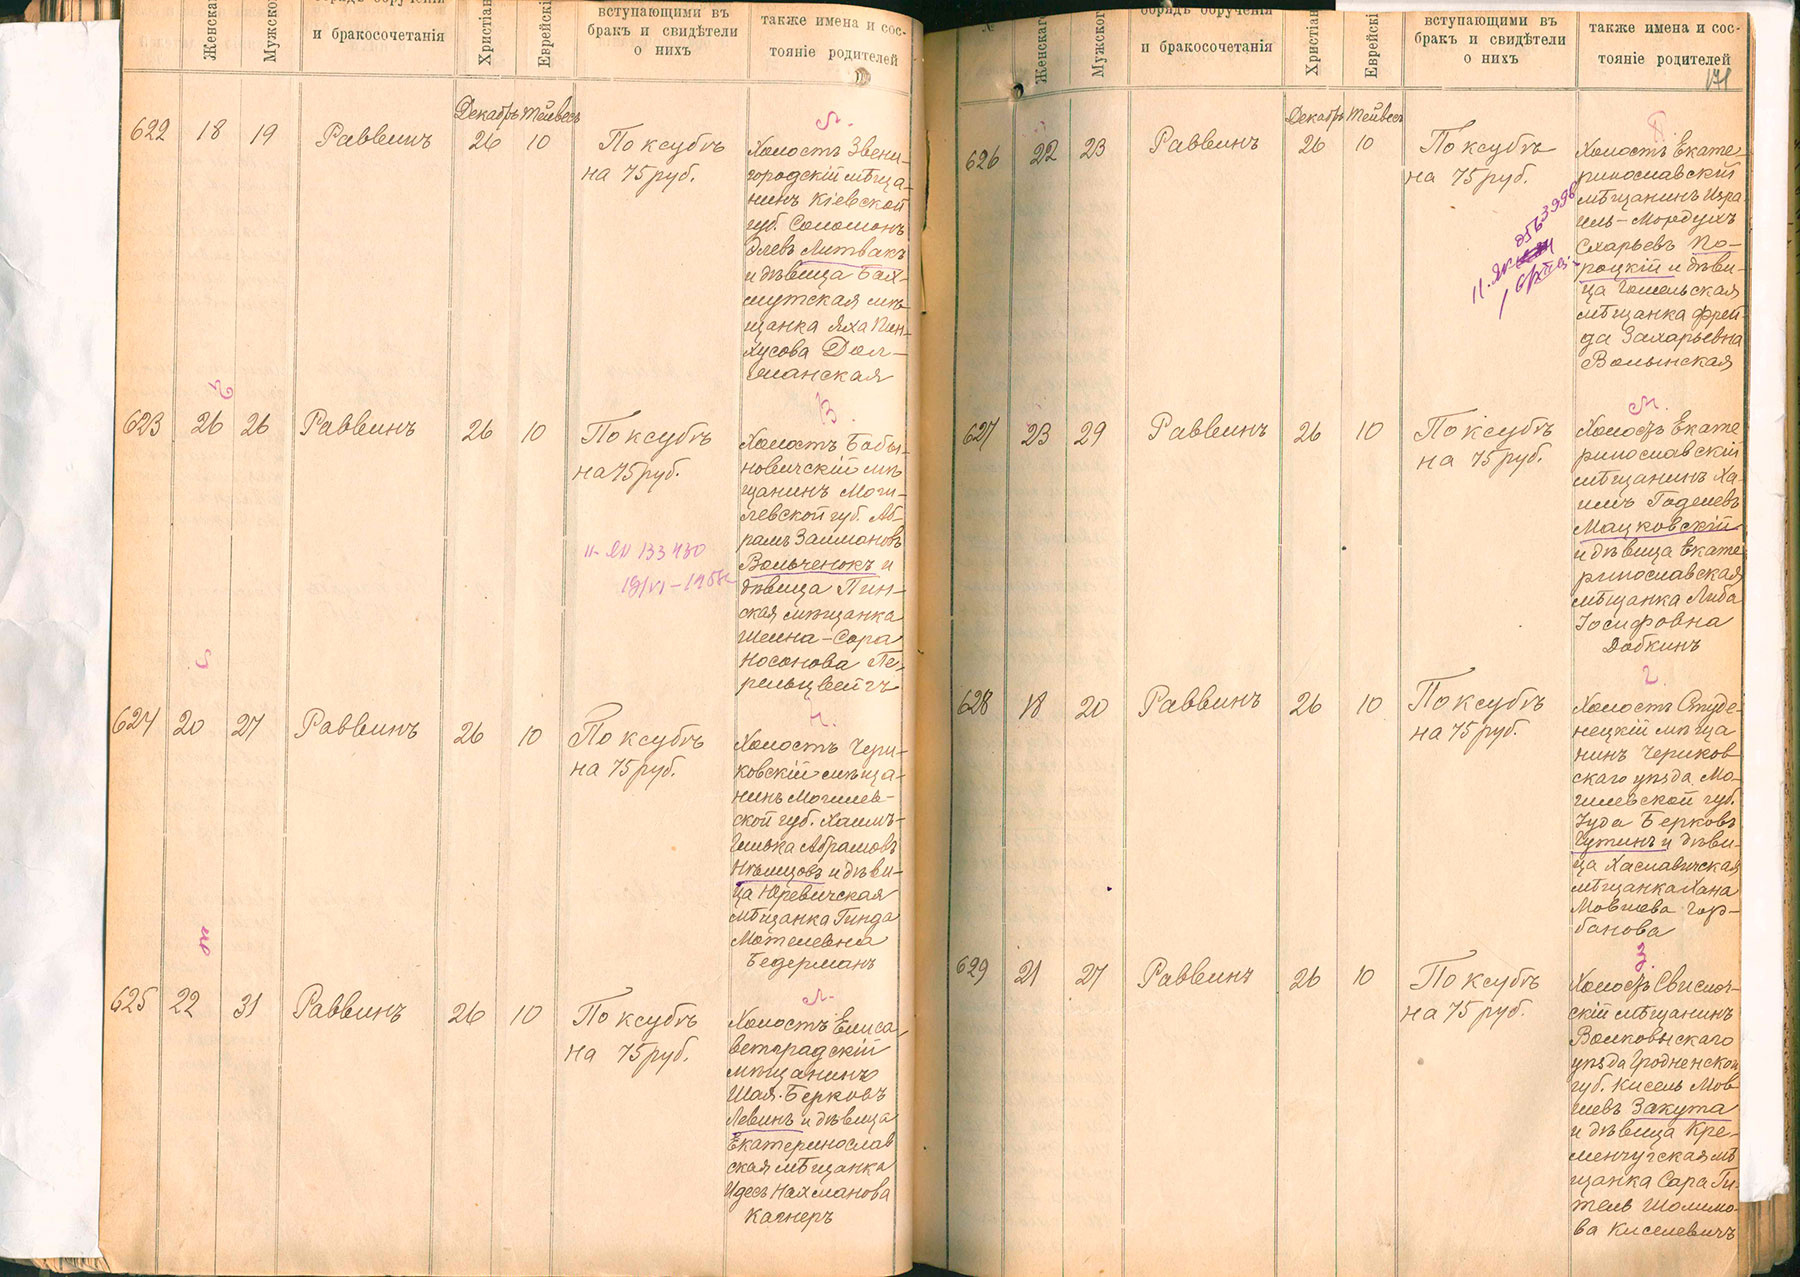 Женскаго
Мужского
обрядъ обрученія
и бракосочетанія
Христіан
Еврейскі
вступающими въ
бракъ и свидѣтели
о нихъ
также имена и сос-
тояніе родителей
Декабрь Тейвесъ
622 18 19 Раввинъ 26 10
По ксубѣ
на 75 руб.
Л.
Холостъ Звени-
городскій мѣща-
нинъ Кіевской
губ. Соломонъ
Литвакъ
и дѣвица Бах-
мутская мѣ-
щанка Яха Пин-
хусова Дол-
жанская
623 26 26 Раввинъ 26 10
По ксубѣ
на 75 руб.
В
Холостъ Бабы-
новичскій мѣ-
щанинъ Моги-
левской губ. Аб-
рамъ Залмановъ
Вольченокъ и
дѣвица Пин-
ская мѣщанка
Шейна-Сора
Носонова Пе-
рельцвейгъ
II-ЯИ 133430
19/VI-195
624 20 27 Раввинъ 26 10
По ксубѣ
на 75 руб.
Н.
Холостъ Чери-
ковскій мѣща-
нинъ Могилев-
ской губ. Хаимъ-
Гилька Абрамовъ
Нѣмцовъ и дѣви-
ца Юревичская
мѣщанка Гинда
Мотелевна
Бедерманъ
625 22 31 Раввинъ 26 10
По ксубѣ
на 75 руб.
Л.
Холостъ Елиса-
ветградскій
мѣщанинъ
Шая-Берковъ
Левинъ и дѣвица
Екатеринослав
ская мѣщанка
Идесъ Нахманова
Кагнеръ
Женскаго
Мужского
обрядъ обрученія
и бракосочетанія
Христіан
Еврейскі
вступающими въ
бракъ и свидѣтели
о нихъ
также имена и сос-
тояніе родителей
171
Декабрь Тейвесъ
626 22 23 Раввинъ 26 10
По ксубѣ
на 75 руб.
П
Холостъ Екате-
ринославскій
мѣщанинъ Изра-
иль-Мордухъ
Схарьевъ По-
роцкій и дѣви-
ца Гомельская
мѣщанка Фрей-
да Захарьевна
Волынская
627 23 29 Раввинъ 26 10
По ксубѣ
на 75 руб.
М.
Холостъ Екате
ринославскій
мѣщанинъ Ха-
имъ Годелевъ
Мацковскій
и дѣвица Екате
ринославская
мѣщанка Либа
Іосифовна
Добкинъ
628 18 20 Раввинъ 26 10
По ксубѣ
на 75 руб.
Г.
Холостъ Студе-
нецкій мѣща
нинъ Чериков-
скаго уѣзда Мо-
гилевской губ.
Іуда Берковъ
Гутинъ и дѣви-
ца Хаславичская
мѣщанка Хана
Мовшева Гор-
банова
629 21 27 Раввинъ 26 10
По ксубѣ
на 75 руб.
З.
Холостъ Свислоч-
скій мѣщанинъ
Волковыскаго
уѣзда Гродненской
губ. Кисель Мов
шевъ Закута
и дѣвица Кре-
менчугская мѣ
щанка Сара Ги-
тель Шолимо-
ва Киселевичъ